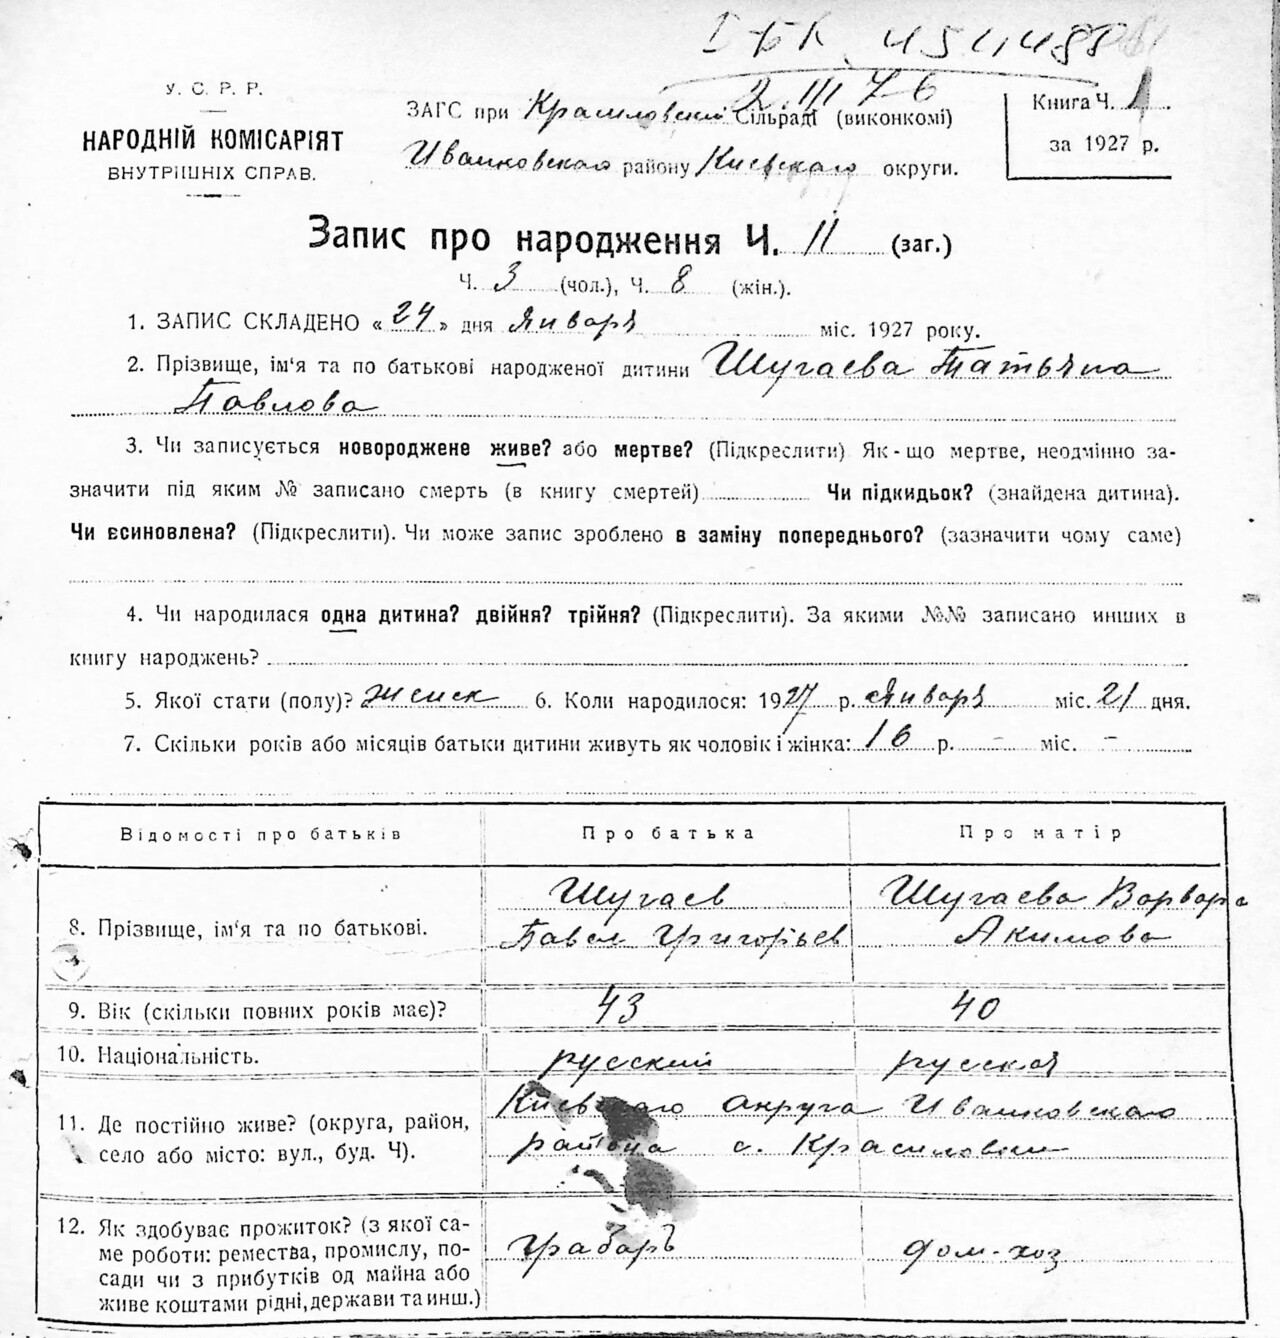 I БК 454488
2.III 76
У. С. Р. Р.
НАРОДНІЙ КОМІСАРІЯТ
ВНУТРІШНІХ СПРАВ.
ЗАГС при Красиловский Сільраді (виконкомі)
Иванковского району Киевского округи.
Книга Ч. 1
за 1927 р.
Запис про народження Ч. 11 (заг.)
Ч. 3 (чол.), Ч. 8 (жін.).
1. ЗАПИС СКЛАДЕНО « 24 » дня Января міс. 1927 року.
2. Прізвище, ім‘я та по батькові народженої дитини Шугаева Татьяна
Павлова
3. Чи записується новороджене живе? або мертве? (Підкреслити) Як-що мертве, неодмінно за-
значити під яким № записано смерть (в книгу смертей) Чи підкидьок? (знайдена дитина).
Чи всиновлена? (Підкреслити). Чи може запис зроблено в заміну попереднього? (зазначити чому саме)
4. Чи народилася одна дитина? двійня? трійня? (Підкреслити). За якими №№ записано инших в
книгу народжень?
5. Якої стати (полу)? женск 6. Коли народилося: 1927 р. Января міс. 21 дня.
7. Скільки років або місяців батьки дитини живуть як чоловік і жінка: 16 р. – міс. –
Відомості про батьків Про батька Про матір
8. Прізвище, ім‘я та по батькові. Шугаев Павел Григорьев Шугаева Варвара Акимова
9. Вік (скільки повних років має)? 43 40
10. Національність. русский русская
11. Де постійно живе? (округа, район, Киевского округа Иванковского
село або місто: вул., буд. Ч). района с. Красиловки
12. Як здобуває прожиток? (з якої са- Грабарь дом-хоз
ме роботи: ремества, промислу, по-
сади чи з прибутків од майна або
живе коштами рідні, держави та инш.)